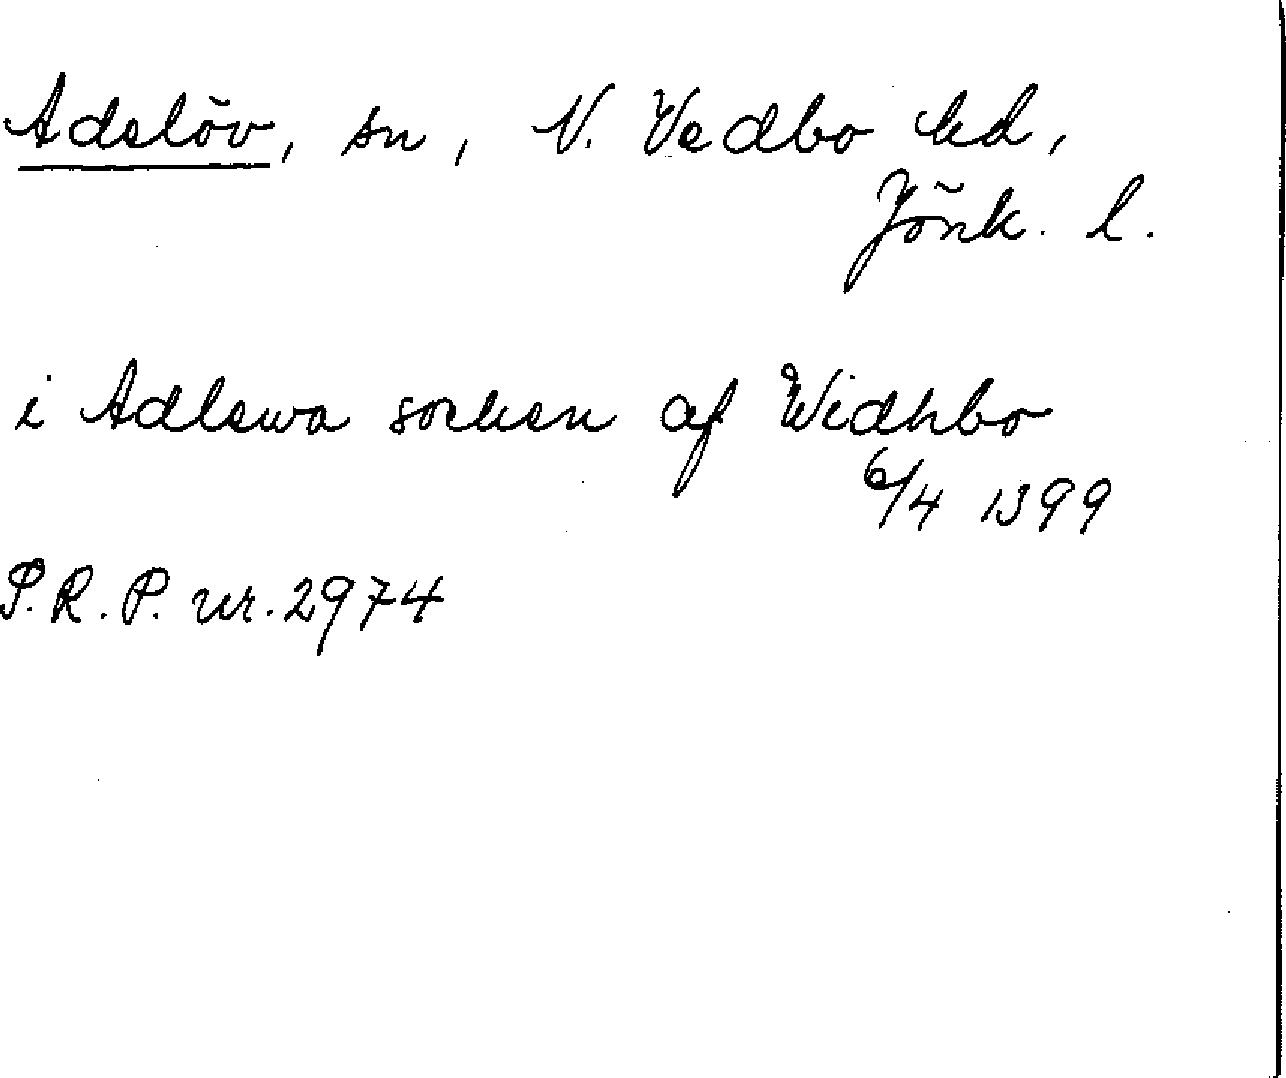 Adelöv, sn, N. Vedbo hd,
Jönk. l.
i Adlewa socken af Widhbo
6/4 1399
P.R.P. nr. 2974